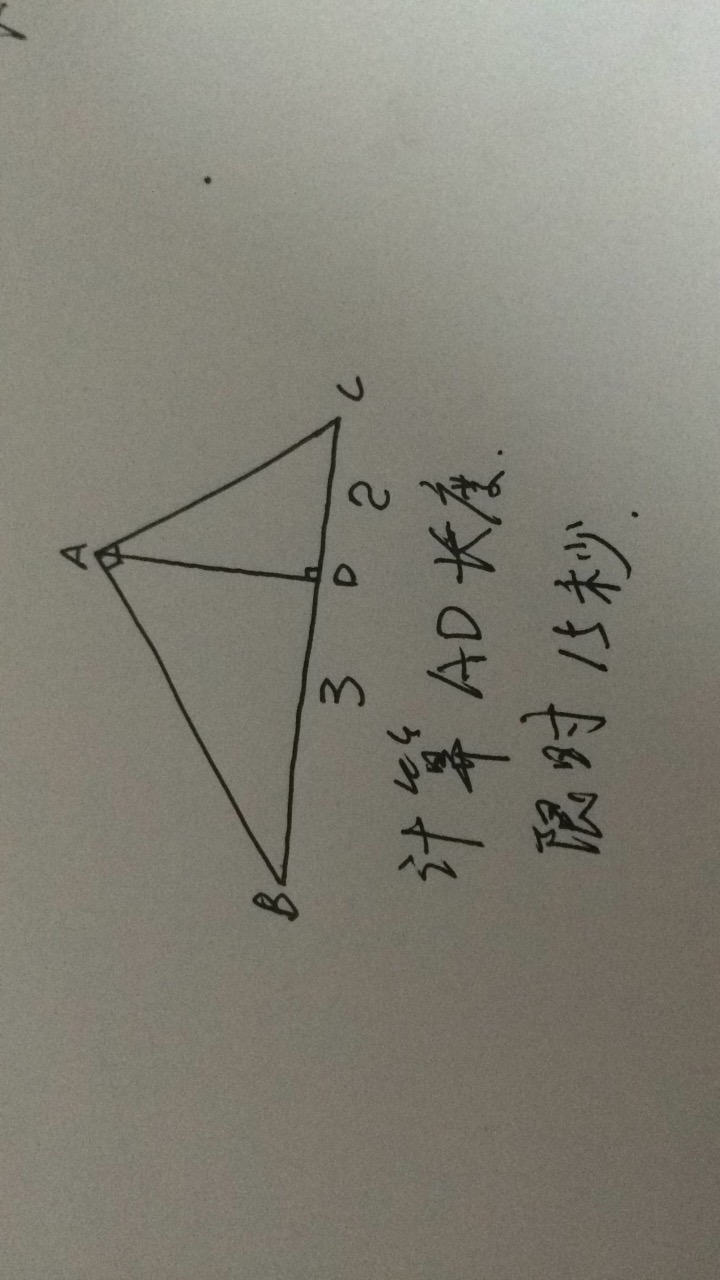 A
B
3
D
2
C
计算 AD 长度.
限时 15秒.